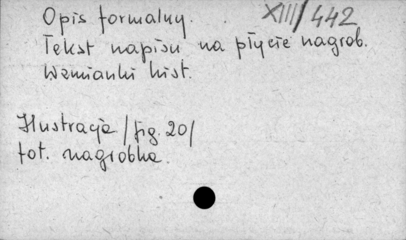 Opis formalny. XIII/442
Tekst napisu na płycie nagrob.
Wzmianki hist.
Ilustracja /fig. 20/
fot. nagrobka.